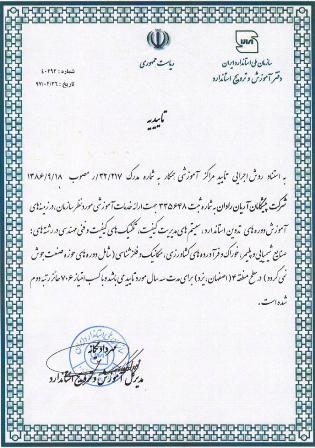 سازمان ملی استاندارد ایران
دفتر آموزش و ترویج استاندارد
ریاست جمهوری
شماره : ۴۰۲۹۲
تاریخ : ۹۷/۰۲/۲۶
تاییدیه
به استناد روش اجرایی تایید مراکز آموزشی همکار به شماره مدرک ۳۲/۲۱۷/ر مصوب ۱۳۸۶/۹/۱۸
شرکت پیشگامان آریان رادان به شماره ثبت ۳۳۵۶۴۸ جهت ارائه خدمات آموزشی مورد نظر سازمان، در زمینه های
آموزش دوره های تدوین استاندارد، سیستم های مدیریت کیفیت، تکنیک های کیفیت و فنی مهندسی در رشته های:
صنایع شیمیایی و پلیمر، خوراک و فرآورده های کشاورزی، مکانیک و فلزشناسی (شامل دوره های حوزه صنعت جوش
نمی گردد) در سطح منطقه ۴ (اصفهان، یزد) برای مدت سه سال مورد تایید می باشد و با کسب امتیاز ۷۰۶ حائز رتبه دوم
شده است.
مهرداد
مدیرکل آموزش و ترویج استاندارد